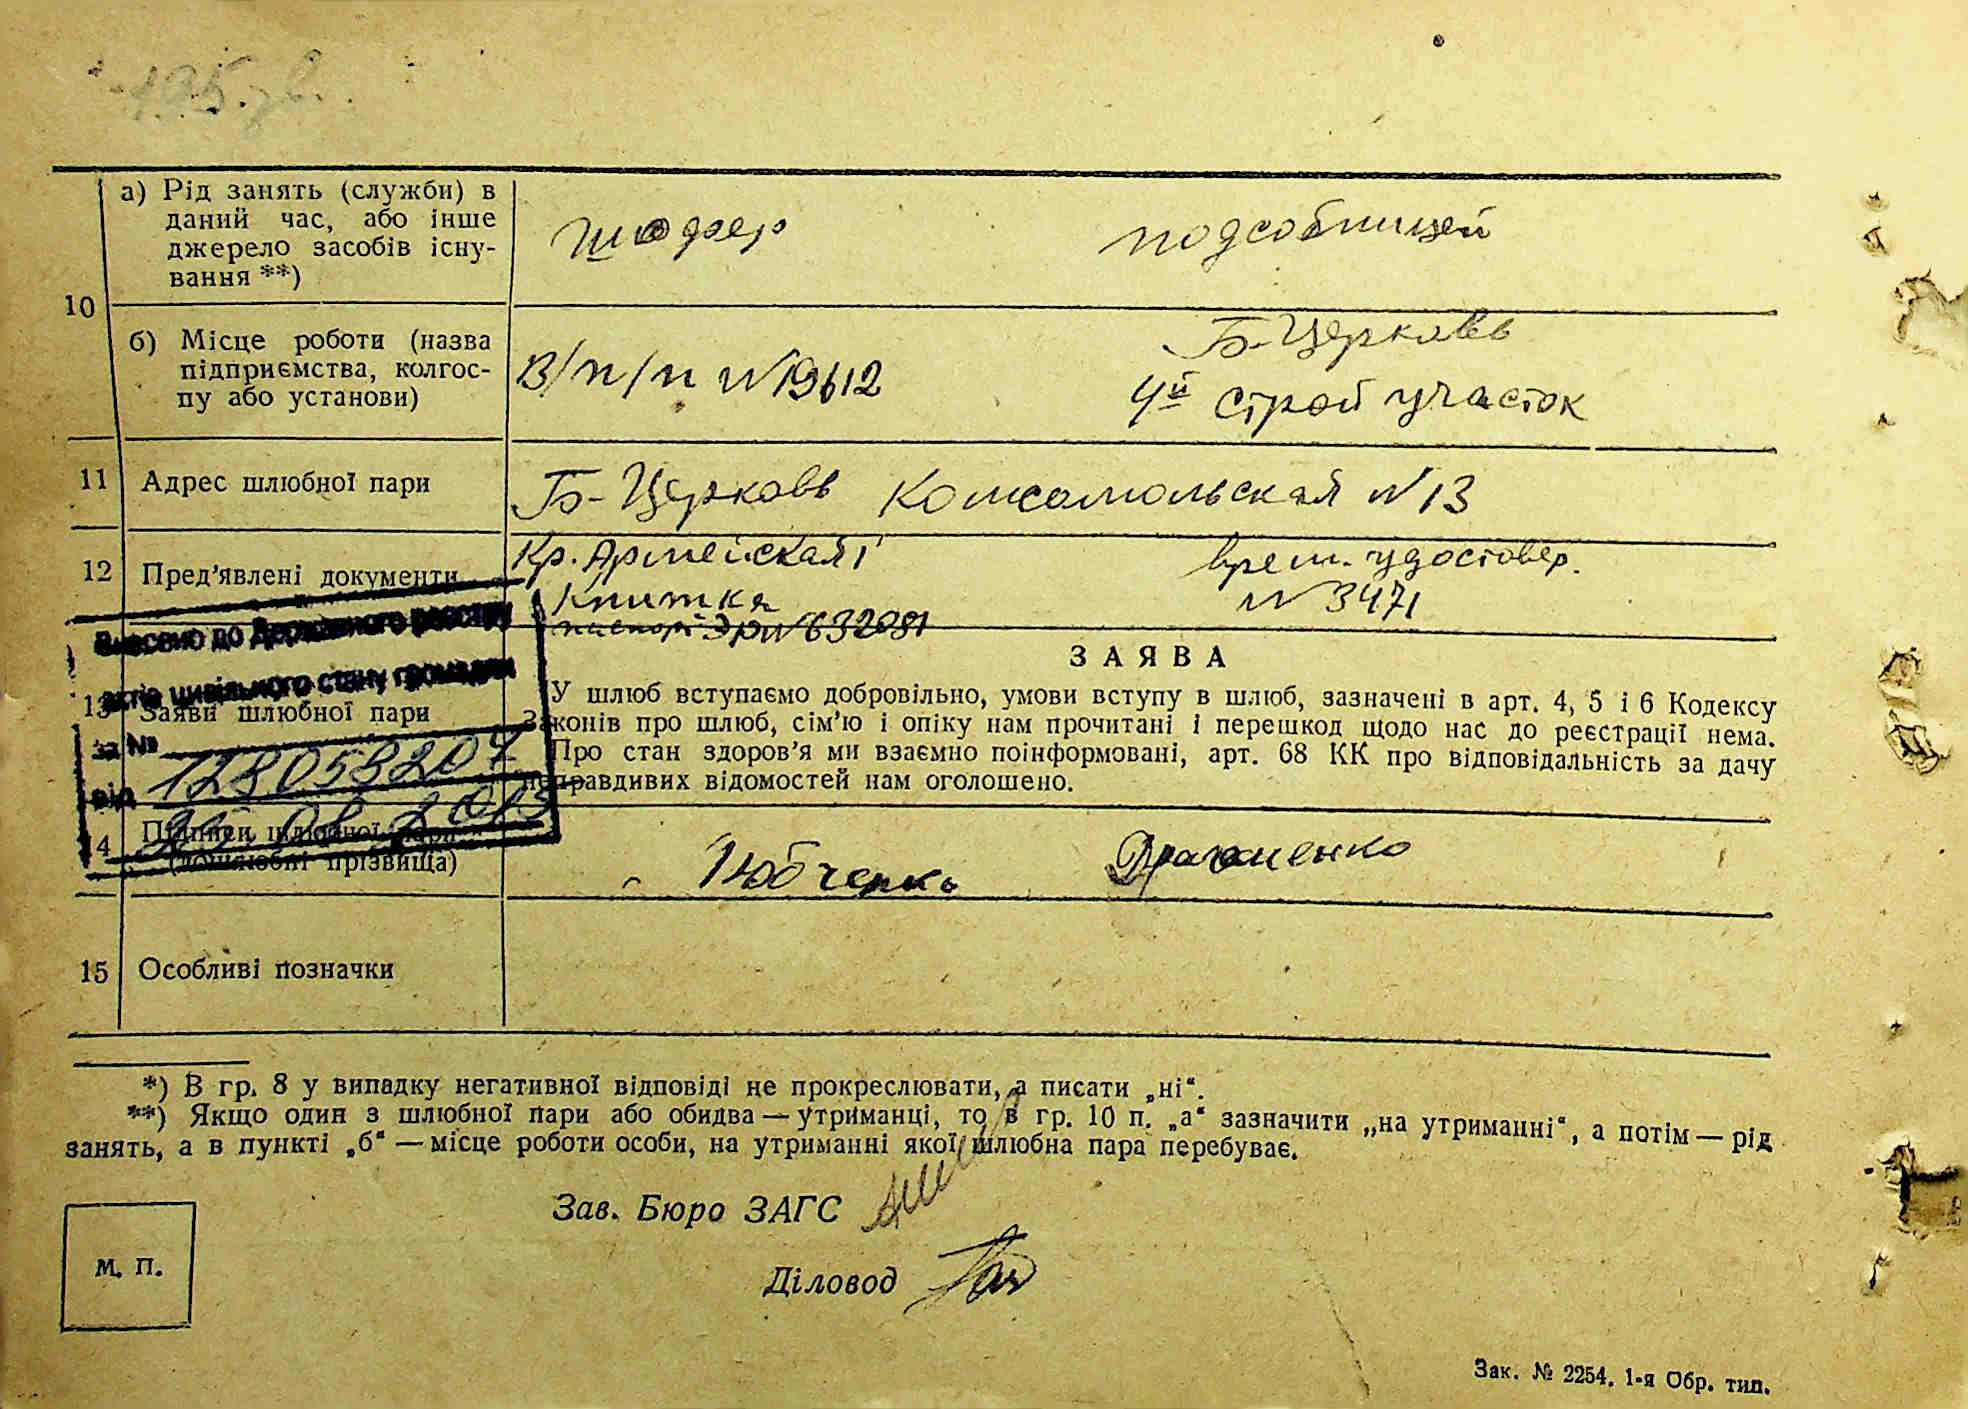 10
а) Рід занять (служби) в
даний час, або інше
джерело засобів існу-
вання **)
шофер
подсобницей
б) Місце роботи (назва
підприємства, колгос-
пу або установи)
В/п/п №19612
Б-Церковь
4й строй участок
11
Адрес шлюбної пари
Б-Церковь Комсомольская №13
12
Пред'явлені документи
Кр. Армейская
Книжка
паспорт №632081
врем. удостовер.
№ 3471
Внесено до Державного реєстру
актів цивільного стану громадян
за №
від
13
Заяви шлюбної пари
ЗАЯВА
У шлюб вступаємо добровільно, умови вступу в шлюб, зазначені в арт. 4, 5 і 6 Кодексу
Законів про шлюб, сім'ю і опіку нам прочитані і перешкод щодо нас до реєстрації нема.
Про стан здоров'я ми взаємно поінформовані, арт. 68 КК про відповідальність за дачу
неправдивих відомостей нам оголошено.
14
Підписи шлюбної пари
(дошлюбні прізвища)
15
Особливі позначки
*) В гр. 8 у випадку негативної відповіді не прокреслювати, а писати „ні“.
**) Якщо один з шлюбної пари або обидва — утриманці, то в гр. 10 п. „а“ зазначити „на утриманні“, а потім — рід
занять, а в пункті „б“ — місце роботи особи, на утриманні якої шлюбна пара перебуває.
Зав. Бюро ЗАГС
Діловод
М. П.
Зак. № 2254. 1-я Обр. тип.